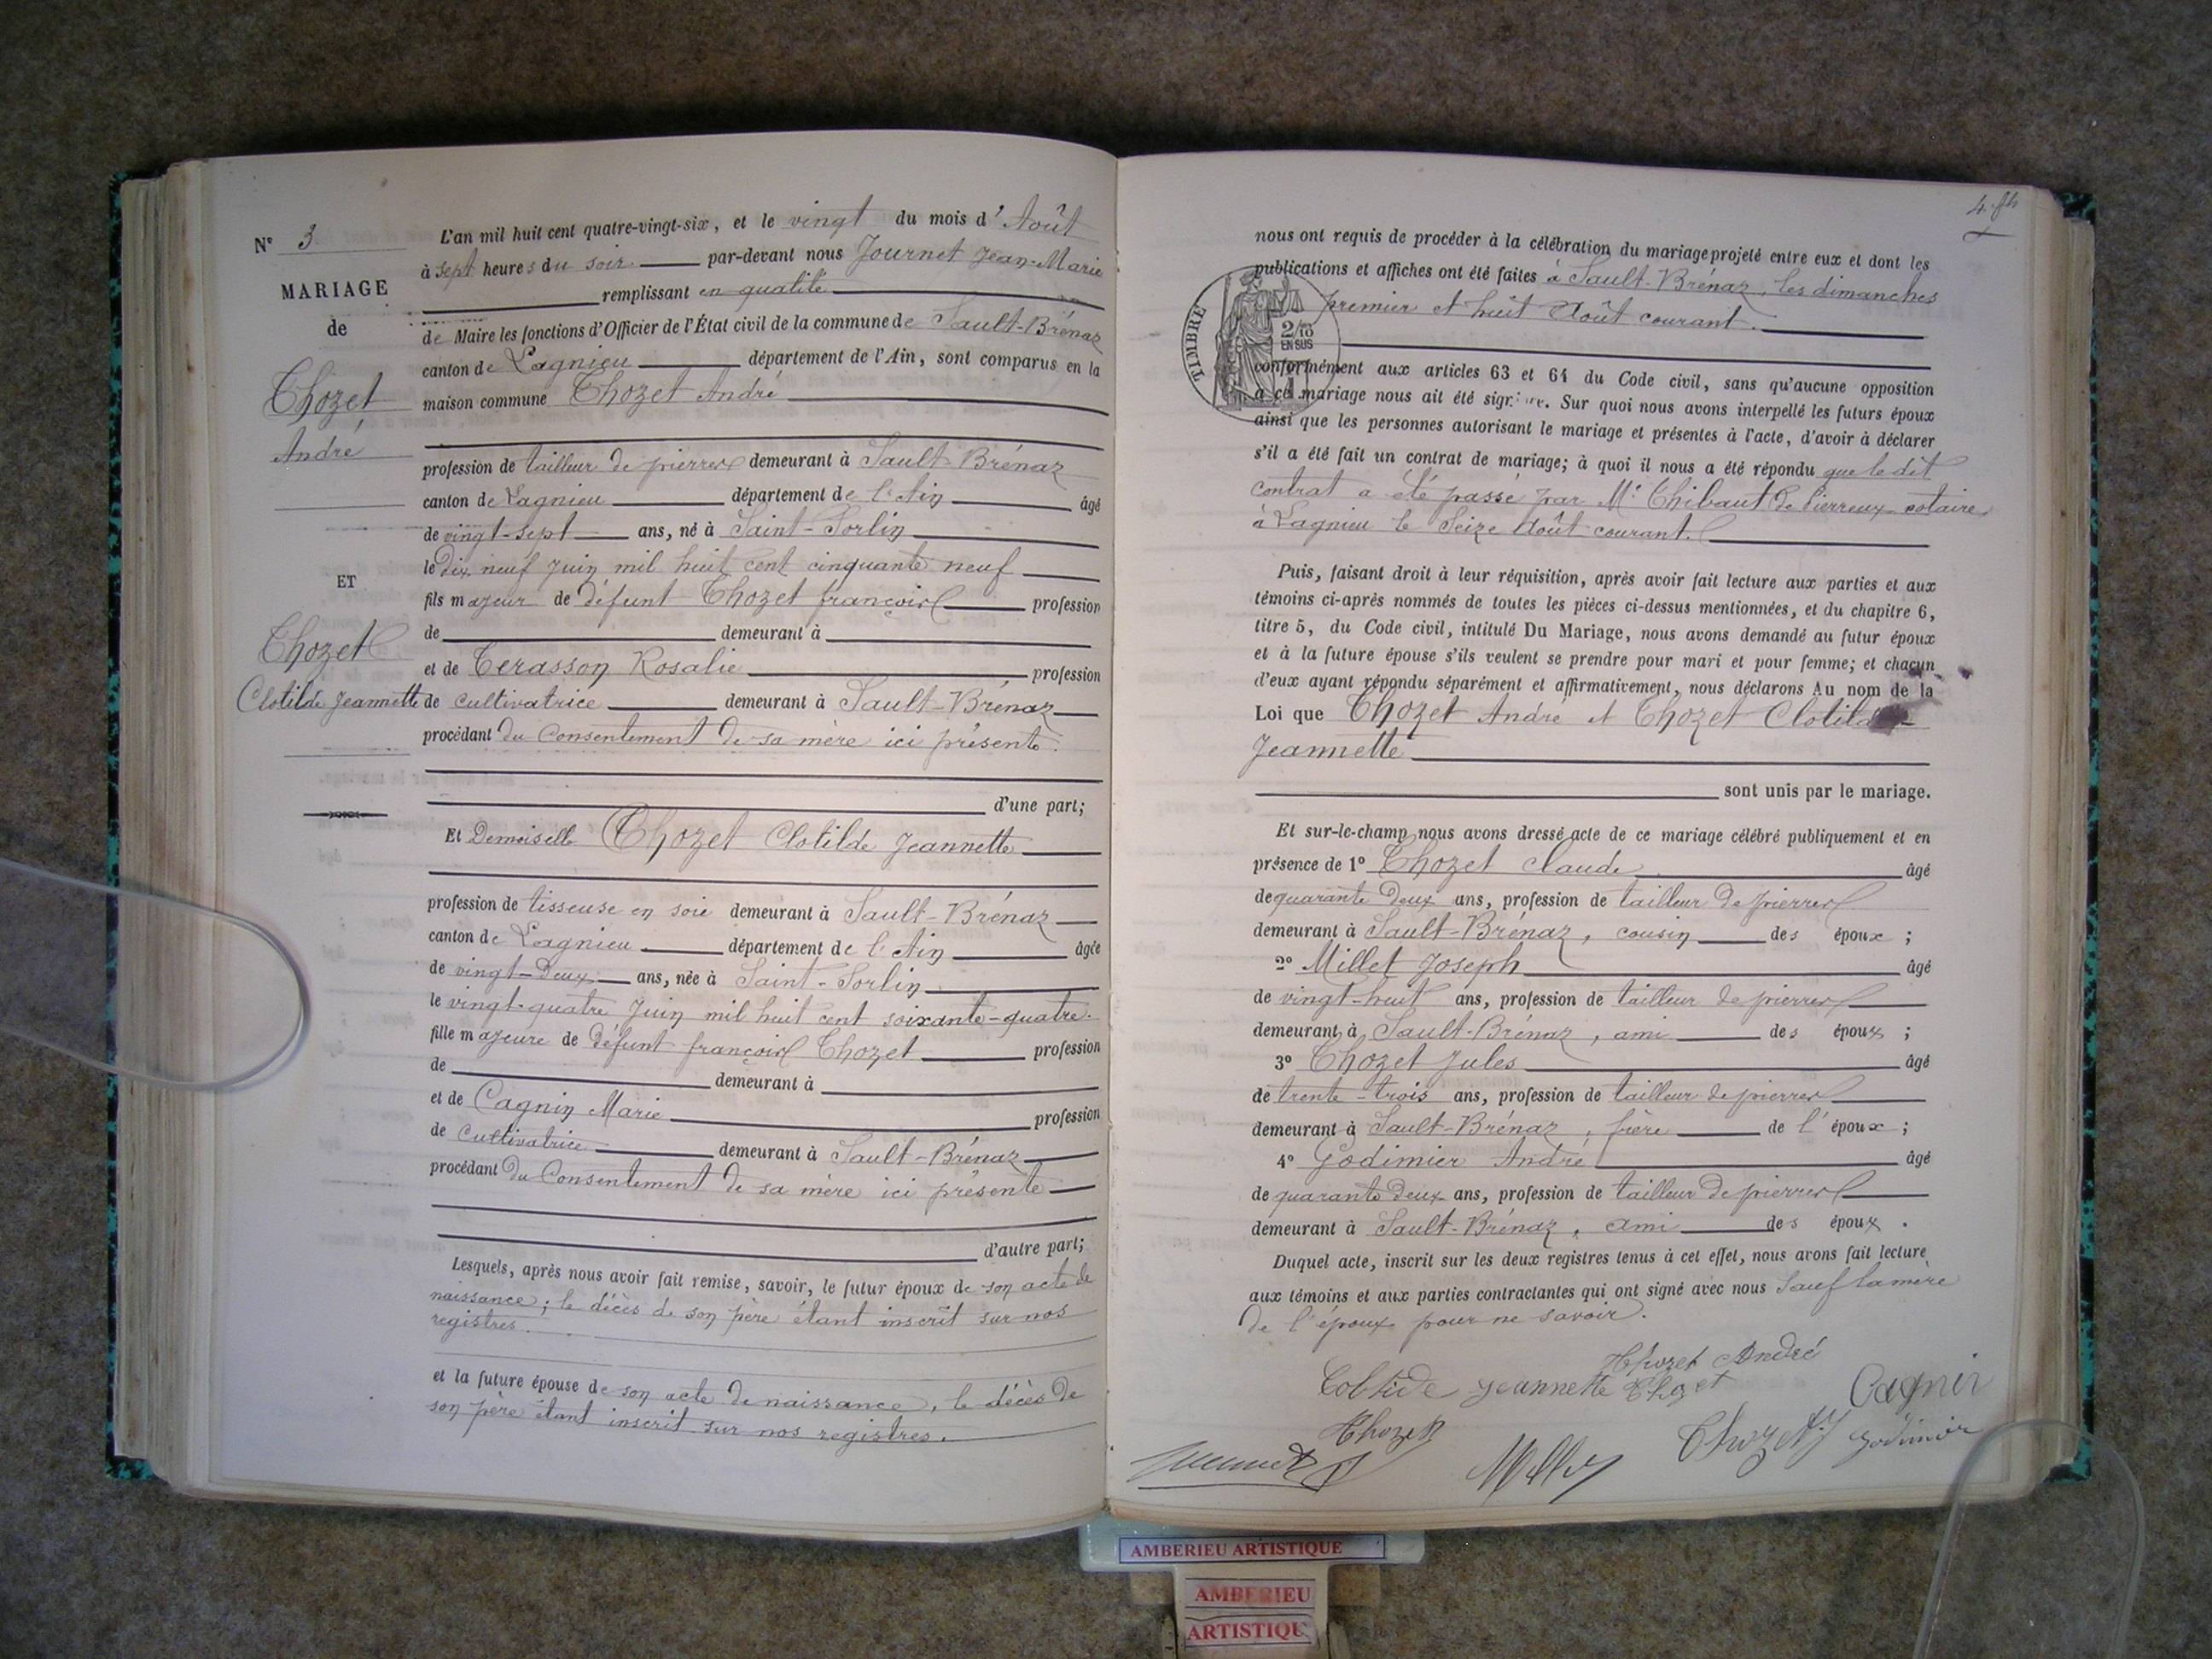 N° 3
MARIAGE
de
Thozet
André
ET
Thozet
Clotilde Jeannette
L'an mil huit cent quatre-vingt-six, et le vingt du mois d'Août
à sept heures du soir par-devant nous Journet Jean-Marie
remplissant en qualité
de Maire les fonctions d'Officier de l'État civil de la commune de Sault-Brénaz
canton de Lagnieu département de l'Ain, sont comparus en la
maison commune Thozet André
profession de tailleur de pierres demeurant à Sault-Brénaz
canton de Lagnieu département de l'Ain âgé
de vingt-sept ans, né à Saint-Sorlin
le dix neuf Juin mil huit cent cinquante neuf
fils majeur de défunt Thozet françois profession
de demeurant à
et de Terasson Rosalie profession
de cultivatrice demeurant à Sault-Brénaz
procédant du Consentement de sa mère ici présente.
d'une part;
Et Demoiselle Thozet Clotilde Jeannette
profession de tisseuse en soie demeurant à Sault-Brénaz
canton de Lagnieu département de l'Ain âgée
de vingt-Deux ans, née à Saint-Sorlin
le vingt-quatre Juin mil huit cent soixante-quatre.
fille majeure de défunt françois Thozet profession
de demeurant à
et de Cagnin Marie profession
de Cultivatrice demeurant à Sault-Brénaz
procédant du Consentement de sa mère ici présente
d'autre part;
Lesquels, après nous avoir fait remise, savoir, le futur époux de son acte de
naissance; le décès de son père étant inscrit sur nos
registres.
et la future épouse de son acte de naissance, le décès de
son père étant inscrit sur nos registres.
nous ont requis de procéder à la célébration du mariage projeté entre eux et dont les
publications et affiches ont été faites à Sault-Brénaz, les dimanches
premier et huit Août courant.
TIMBRE
2/10
EN SUS
conformément aux articles 63 et 64 du Code civil, sans qu'aucune opposition
à ce mariage nous ait été signifiée. Sur quoi nous avons interpellé les futurs époux
ainsi que les personnes autorisant le mariage et présentes à l'acte, d'avoir à déclarer
s'il a été fait un contrat de mariage; à quoi il nous a été répondu que le dit
contrat a été passé par Me Thibaut de Pierreux notaire
à Lagnieu le Seize Août courant.
Puis, faisant droit à leur réquisition, après avoir fait lecture aux parties et aux
témoins ci-après nommés de toutes les pièces ci-dessus mentionnées, et du chapitre 6,
titre 5, du Code civil, intitulé Du Mariage, nous avons demandé au futur époux
et à la future épouse s'ils veulent se prendre pour mari et pour femme; et chacun
d'eux ayant répondu séparément et affirmativement, nous déclarons Au nom de la
Loi que Thozet André et Thozet Clotilde
Jeannette
sont unis par le mariage.
Et sur-le-champ nous avons dressé acte de ce mariage célébré publiquement et en
présence de 1° Thozet Claude âgé
de quarante deux ans, profession de tailleur de pierres
demeurant à Sault-Brénaz, cousin des époux;
2° Millet Joseph âgé
de vingt-huit ans, profession de tailleur de pierres
demeurant à Sault-Brénaz, ami des époux;
3° Thozet Jules âgé
de trente-trois ans, profession de tailleur de pierres
demeurant à Sault-Brénaz, frère de l'époux;
4° Godimier André âgé
de quarante deux ans, profession de tailleur de pierres
demeurant à Sault-Brénaz, ami des époux.
Duquel acte, inscrit sur les deux registres tenus à cet effet, nous avons fait lecture
aux témoins et aux parties contractantes qui ont signé avec nous Sauf la mère
de l'époux pour ne savoir.
Thozet André
Jeannette Thozet
Cagnin
Thozet
Thozet
Godimier
AMBERIEU ARTISTIQUE
AMBERIEU
ARTISTIQUE